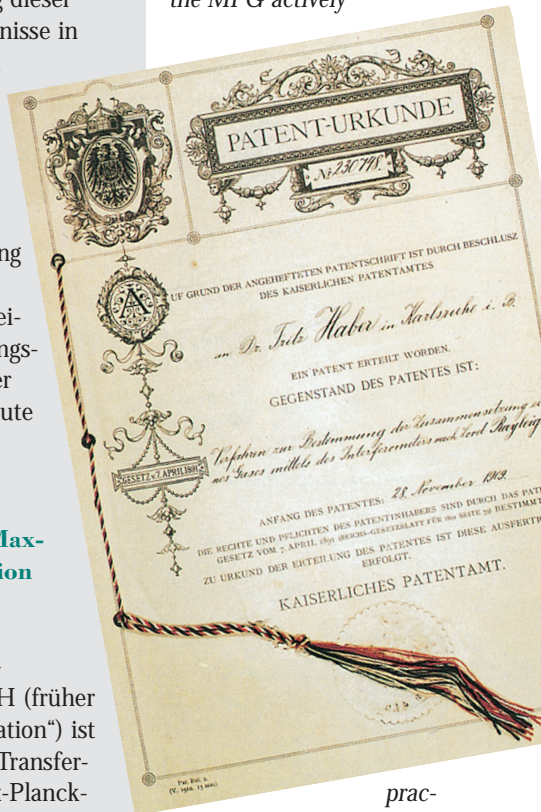 g dieser
nisse in
the MPG actively
ng
ei-
ngs-
er
ute
Max-
ion
H (früher
ation“) ist
Transfer-
x-Planck-
PATENT-URKUNDE
No 230748.
AUF GRUND DER ANGEHEFTETEN PATENTSCHRIFT IST DURCH BESCHLUSZ
DES KAISERLICHEN PATENTAMTES
an Dr. Fritz Haber in Karlsruhe i. B.
EIN PATENT ERTEILT WORDEN.
GEGENSTAND DES PATENTES IST:
Verfahren zur Bestimmung der Zusammensetzung ei
nes Gases mittels des Interferometers nach Lord Rayleigh
GESETZ v. 7. APRIL 1891
ANFANG DES PATENTES: 28. November 1909.
DIE RECHTE UND PFLICHTEN DES PATENTINHABERS SIND DURCH DAS PATE
GESETZ VOM 7. APRIL 1891 (REICHS-GESETZBLATT FÜR 1891 SEITE 79) BESTIMMT
ZU URKUND DER ERTEILUNG DES PATENTES IST DIESE AUSFERTIG
ERFOLGT.
KAISERLICHES PATENTAMT.
prac-